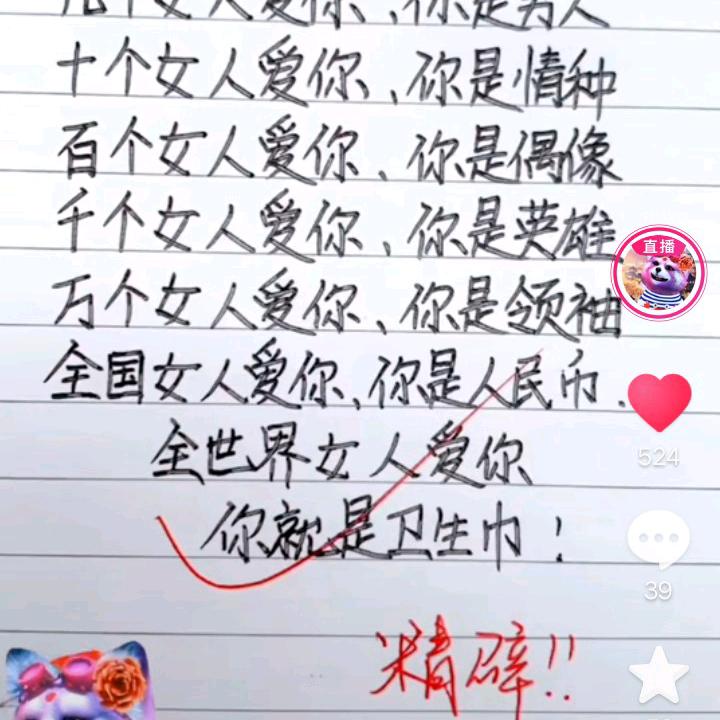 几个女人爱你、你是男人
十个女人爱你、你是情种
百个女人爱你、你是偶像
千个女人爱你、你是英雄
万个女人爱你、你是领袖
全国女人爱你、你是人民币.
全世界女人爱你
你就是卫生巾!
精辟!!
直播
524
39